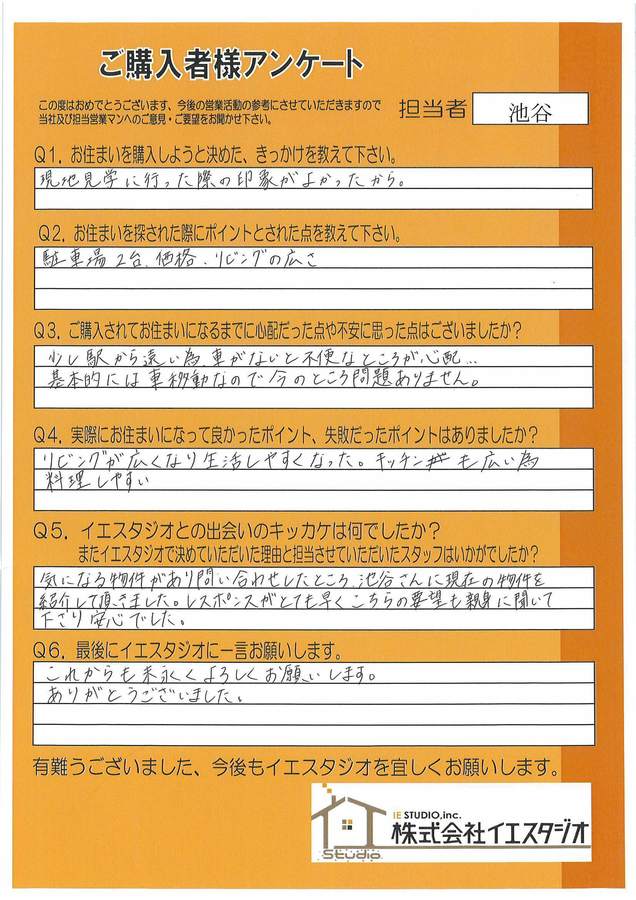 ご購入者様アンケート
この度はおめでとうございます、今後の営業活動の参考にさせていただきますので
当社及び担当営業マンへのご意見・ご要望をお聞かせ下さい。
担当者 池谷
Q1. お住まいを購入しようと決めた、きっかけを教えて下さい。
現地見学に行った際の印象がよかったから。
Q2. お住まいを探された際にポイントとされた点を教えて下さい。
駐車場2台、価格、リビングの広さ
Q3. ご購入されてお住まいになるまでに心配だった点や不安に思った点はございましたか?
少し駅から遠い為、車がないと不便なところが心配…
基本的には車移動なので今のところ問題ありません。
Q4. 実際にお住まいになって良かったポイント、失敗だったポイントはありましたか?
リビングが広くなり生活しやすくなった。キッチンも広い為
料理しやすい
Q5. イエスタジオとの出会いのキッカケは何でしたか?
またイエスタジオで決めていただいた理由と担当させていただいたスタッフはいかがでしたか?
気になる物件があり問い合わせしたところ、池谷さんに現在の物件を
紹介して頂きました。レスポンスがとても早くこちらの要望も親身に聞いて
下さり安心でした。
Q6. 最後にイエスタジオに一言お願いします。
これからも末永くよろしくお願いします。
ありがとうございました。
有難うございました、今後もイエスタジオを宜しくお願いします。
IE STUDIO,inc.
株式会社イエスタジオ
Studio